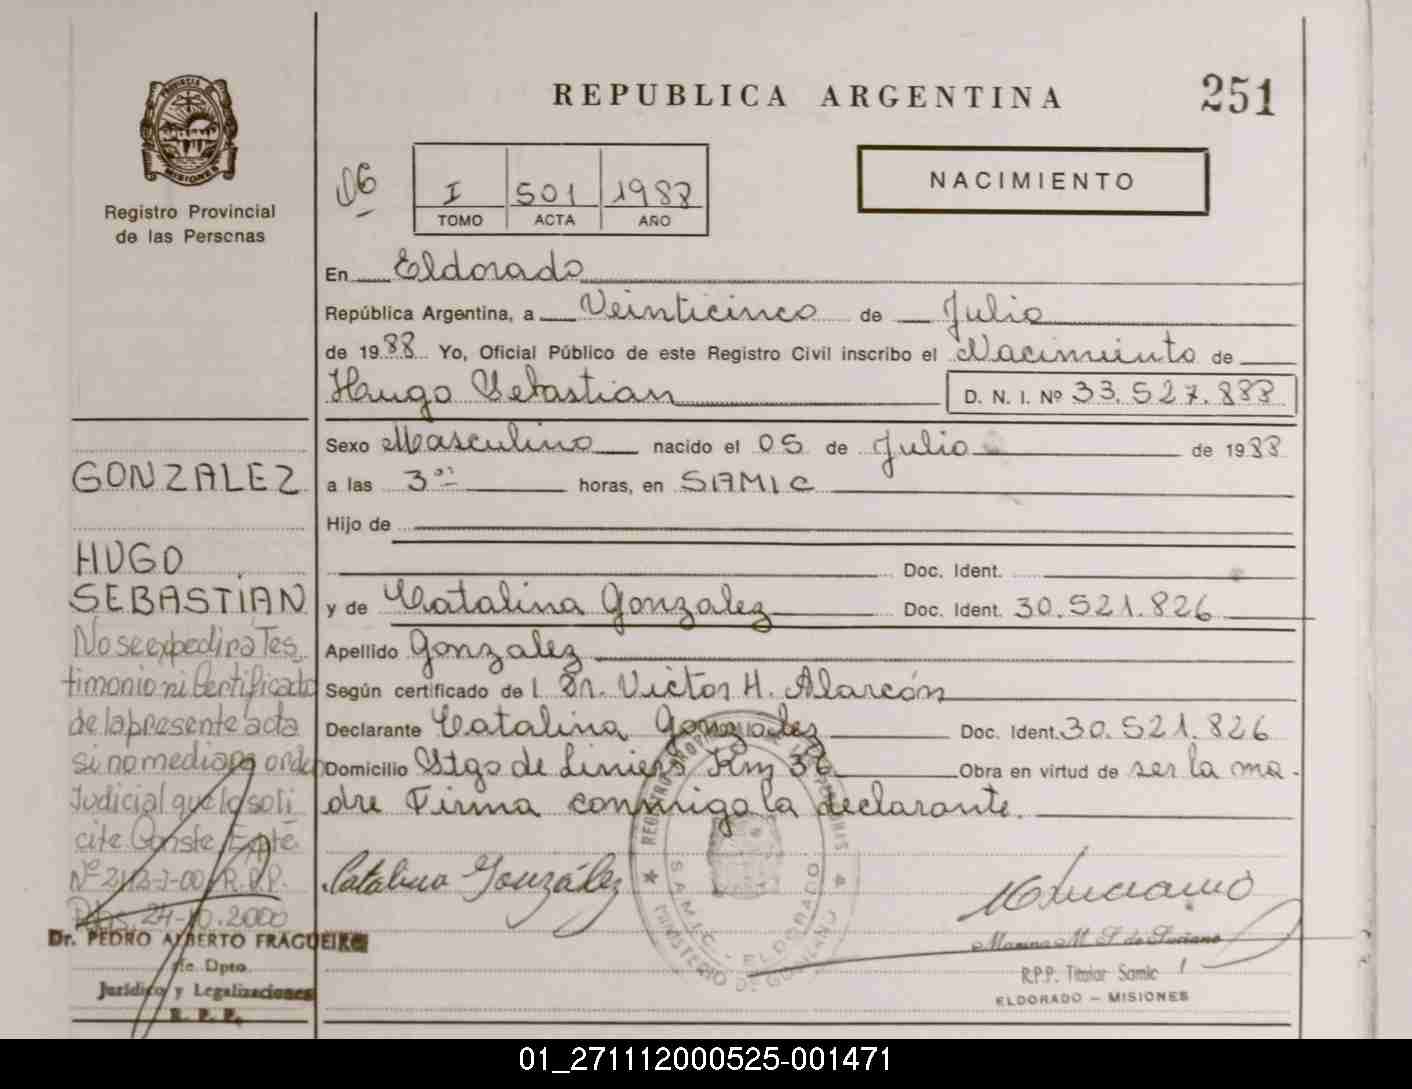 REPUBLICA ARGENTINA
251
PROVINCIA DE
MISIONES
Registro Provincial
de las Personas
06
I 501 1988
TOMO ACTA AÑO
NACIMIENTO
En Eldorado
República Argentina, a Veinticinco de Julio
de 1988 Yo, Oficial Público de este Registro Civil inscribo el Nacimiento de
Hugo Sebastian D. N. I. Nº 33.527.888
Sexo Masculino nacido el 05 de Julio de 1988
a las 3 horas, en SAMIC
Hijo de
Doc. Ident.
y de Catalina Gonzalez Doc. Ident. 30.521.826
Apellido Gonzalez
Según certificado de l Dr. Victor H. Alarcón
Declarante Catalina Gonzalez Doc. Ident. 30.521.826
Domicilio Stgo de Liniers Km Obra en virtud de ser la ma-
dre Firma conmigo la declarante.
Catalina González
GONZALEZ
HUGO
SEBASTIAN
No se expedira Tes
timonio ni Certificado
de la presente acta
si no media orden
Judicial que lo soli
cite Conste Expte.
R.P.P.
24-10-2000
Dr. PEDRO ALBERTO FRAGUEIRO
Jfe Dpto.
Jurídico y Legalizaciones
R. P. P.
REGISTRO PROVINCIAL DE LAS PERSONAS
S.A.M.I.C. - ELDORADO
MINISTERIO DE GOBIERNO
R.P.P. Titular Samic
ELDORADO - MISIONES
01_271112000525-001471